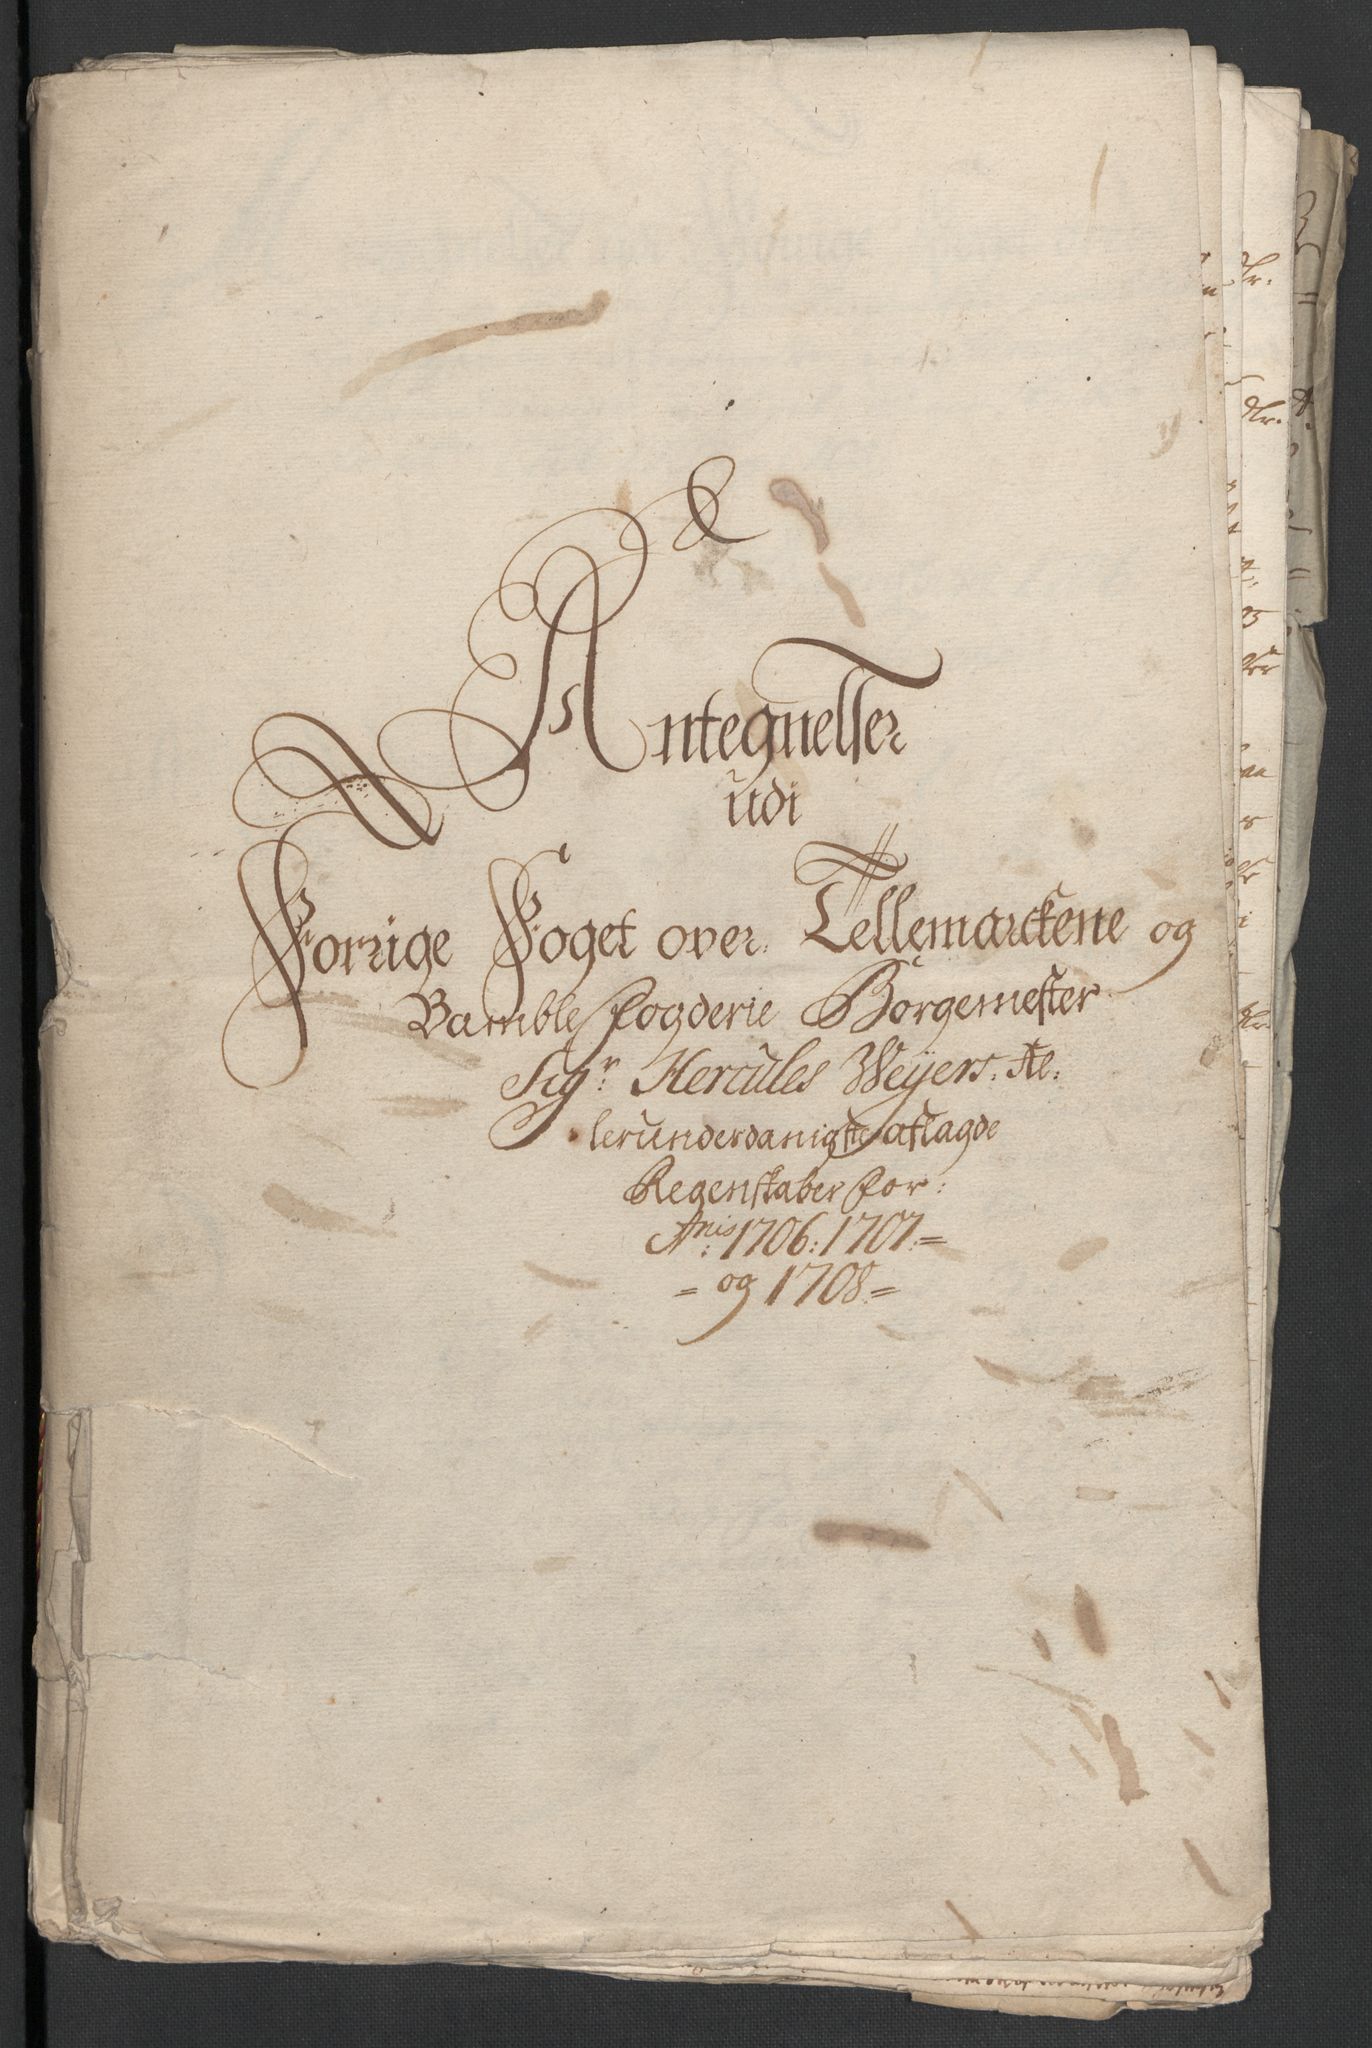 Antegnelser
udi
Forrige Foget over Tellemarckene og
Bamble fogderie Borgemester
Sigr: Hercules Weÿers. Al:
lerunderdanigste aflagde
Regenskaber for:
Anis: 1706: 1707:=
= og 1708=